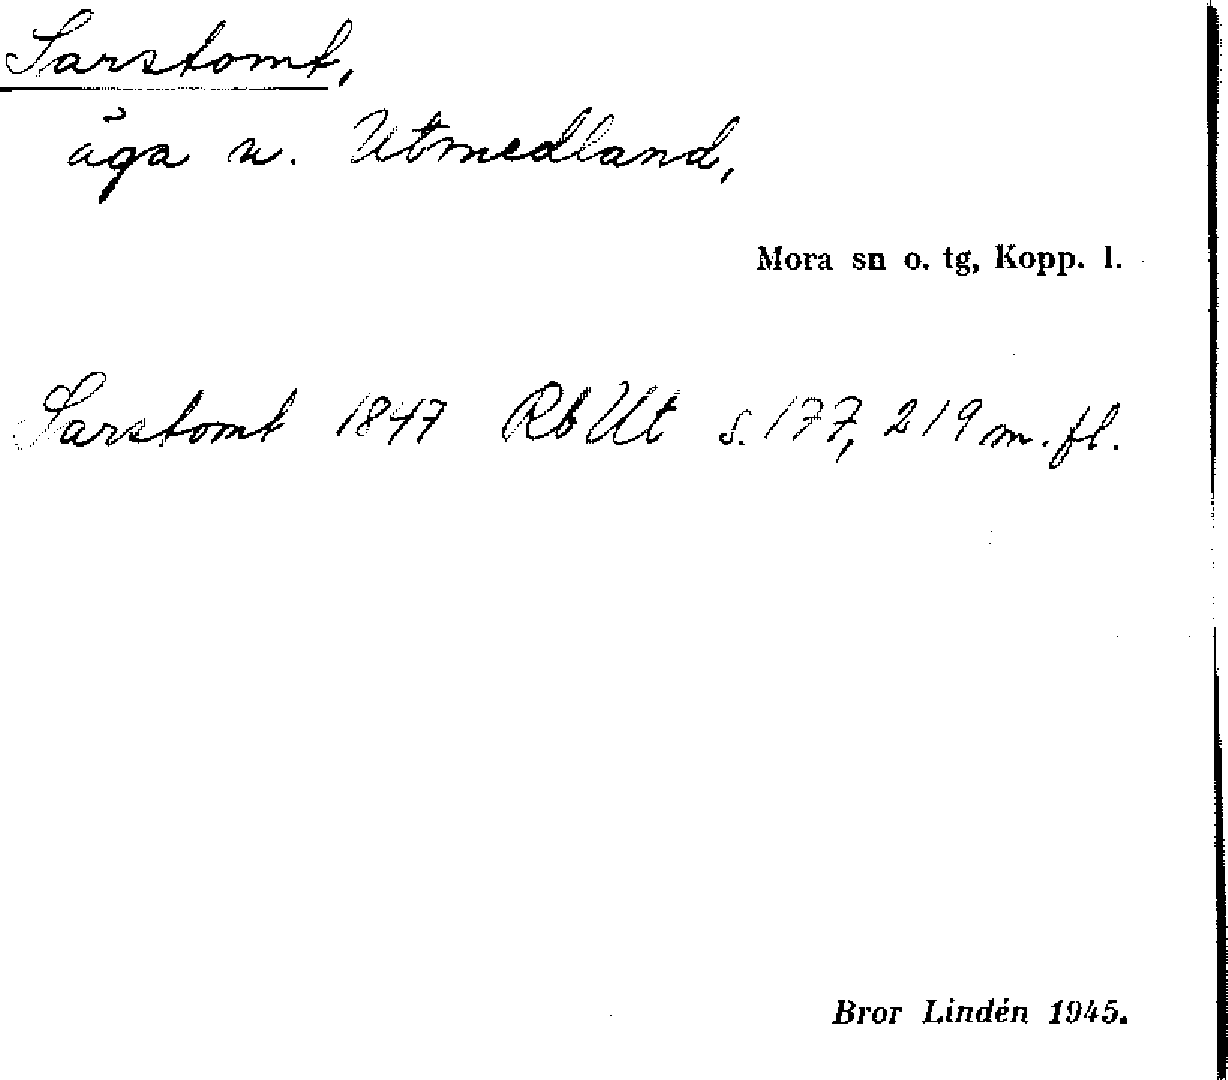 Sarstomt,
äga u. Utmedland,
Mora sn o. tg, Kopp. l.
Sarstomt 1847 Rb Ut s. 177, 219 m. fl.
Bror Lindén 1945.